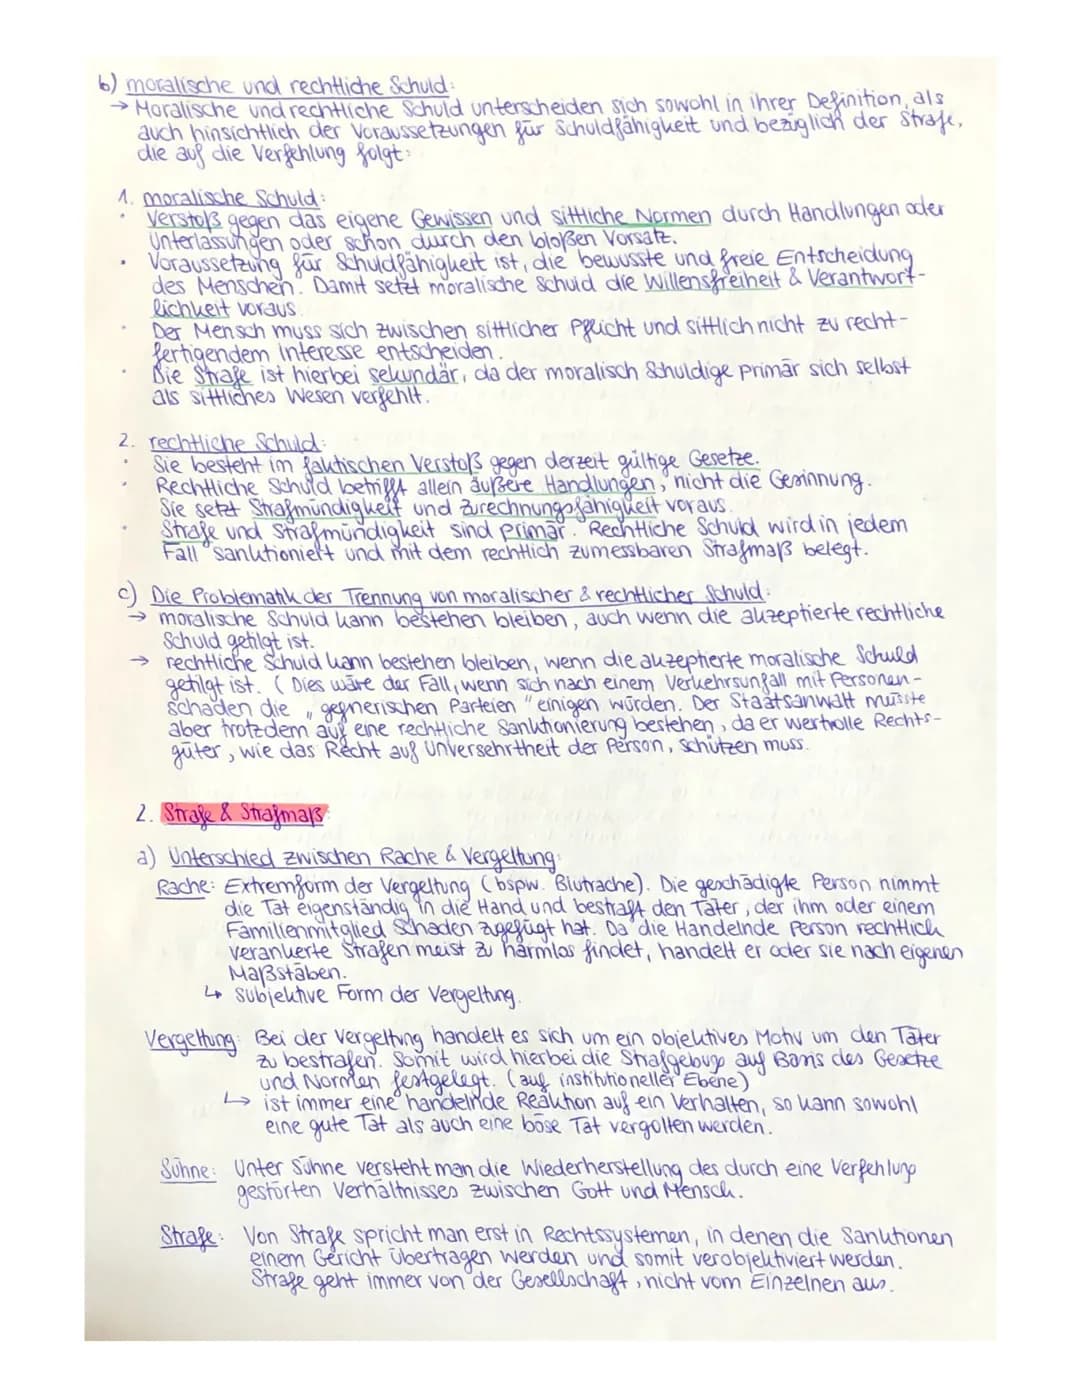 b) moralische und rechtliche Schuld:
→ Moralische und rechtliche Schuld unterscheiden sich sowohl in ihrer Definition, als
auch hinsichtlich der Voraussetzungen für Schuldfähigkeit und bezüglich der Strafe,
die auf die Verfehlung folgt:
1. moralische Schuld:
• Verstoß gegen das eigene Gewissen und sittliche Normen durch Handlungen oder
Unterlassungen oder schon durch den bloßen Vorsatz.
• Voraussetzung für Schuldfähigkeit ist, die bewusste und freie Entscheidung
des Menschen. Damit setzt moralische Schuld die Willensfreiheit & Verantwort-
lichkeit voraus.
• Der Mensch muss sich zwischen sittlicher Pflicht und sittlich nicht zu recht-
fertigendem Interesse entscheiden.
• Die Strafe ist hierbei sekundär, da der moralisch Schuldige primär sich selbst
als sittliches Wesen verfehlt.
2. rechtliche Schuld:
• Sie besteht im faktischen Verstoß gegen derzeit gültige Gesetze.
• Rechtliche Schuld betrifft allein äußere Handlungen, nicht die Gesinnung.
Sie setzt Strafmündigkeit und Zurechnungsfähigkeit voraus.
• Strafe und Strafmündigkeit sind primär. Rechtliche Schuld wird in jedem
Fall sanktioniert und mit dem rechtlich zumessbaren Strafmaß belegt.
c) Die Problematik der Trennung von moralischer & rechtlicher Schuld:
→ moralische Schuld kann bestehen bleiben, auch wenn die akzeptierte rechtliche
Schuld getilgt ist.
→ rechtliche Schuld kann bestehen bleiben, wenn die akzeptierte moralische Schuld
getilgt ist. (Dies wäre der Fall, wenn sich nach einem Verkehrsunfall mit Personen-
schaden die „gegnerischen Parteien" einigen würden. Der Staatsanwalt müsste
aber trotzdem auf eine rechtliche Sanktionierung bestehen, da er wertvolle Rechts-
güter, wie das Recht auf Unversehrtheit der Person, schützen muss.
2. Strafe & Strafmaß:
a) Unterschied zwischen Rache & Vergeltung:
Rache: Extremform der Vergeltung (bspw. Blutrache). Die geschädigte Person nimmt
die Tat eigenständig in die Hand und bestraft den Täter, der ihm oder einem
Familienmitglied Schaden zugefügt hat. Da die Handelnde Person rechtlich
verankerte Strafen meist zu harmlos findet, handelt er oder sie nach eigenen
Maßstäben.
↳ subjektive Form der Vergeltung.
Vergeltung: Bei der Vergeltung handelt es sich um ein objektives Motiv um den Täter
zu bestrafen. Somit wird hierbei die Strafgebung auf Basis des Gesetze
und Normen festgelegt. (auf institutioneller Ebene)
↳ ist immer eine handelnde Reaktion auf ein Verhalten, so kann sowohl
eine gute Tat als auch eine böse Tat vergolten werden.
Sühne: Unter Sühne versteht man die Wiederherstellung des durch eine Verfehlung
gestörten Verhältnisses zwischen Gott und Mensch.
Strafe: Von Strafe spricht man erst in Rechtssystemen, in denen die Sanktionen
einem Gericht übertragen werden und somit verobjektiviert werden.
Strafe geht immer von der Gesellschaft, nicht vom Einzelnen aus.